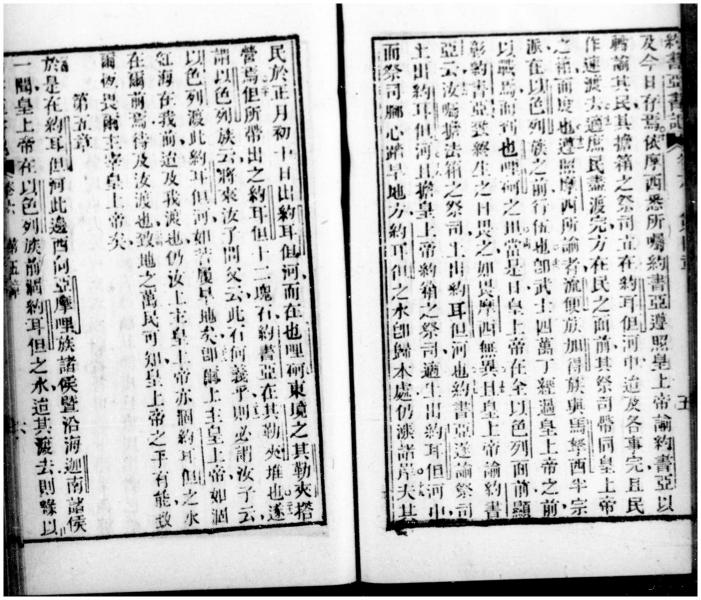 約書亞書記
五
及今日存焉。依摩西悉所囑約書亞遵照皇上帝諭約書亞以
轉諭其民其擔箱之祭司立在約耳但河中迨及各事完且民
作速渡去適庶民盡渡完方在民之面前其祭司帶同皇上帝
之箱而度也遵照摩西所諭者流便族加得族與馬拏西半宗
派在以色列族之前行伍也卽武士四萬丁經過皇上帝之前
以戰焉而到也哩珂之田當是日皇上帝在全以色列面前顯
彰約書亞致終生之日畏之如畏摩西無異且皇上帝諭約書
亞云汝囑擔法箱之祭司上出約耳但河也約書亞遂諭祭司
上出約耳但河且擔皇上帝約箱之祭司適上出約耳但河中
而祭司腳心踏旱地方約耳但之水卽歸本處仍漾諸岸夫其
民於正月初十日出約耳但河而在也哩珂東境之其勒夾搭
營焉但所帶出之約耳但十二塊石約書亞在其勒夾堆也遂
謂以色列族云將來汝子問父云此石何義乎則必謂汝子云
以色列渡此約耳但河如若履旱地矣卽爾上主皇上帝如涸
紅海在我前迨及我渡也仍汝上主皇上帝亦涸約耳但之水
在爾前焉待及汝渡也致地之萬民可知皇上帝之手有能致
爾恆畏爾上主皇上帝矣
第五章
於是在約耳但河此邊西向亞摩哩族諸侯暨沿海迦南諸侯
一聞皇上帝在以色列族前涸約耳但之水迨其渡去則緣以
卷六 第五章 六